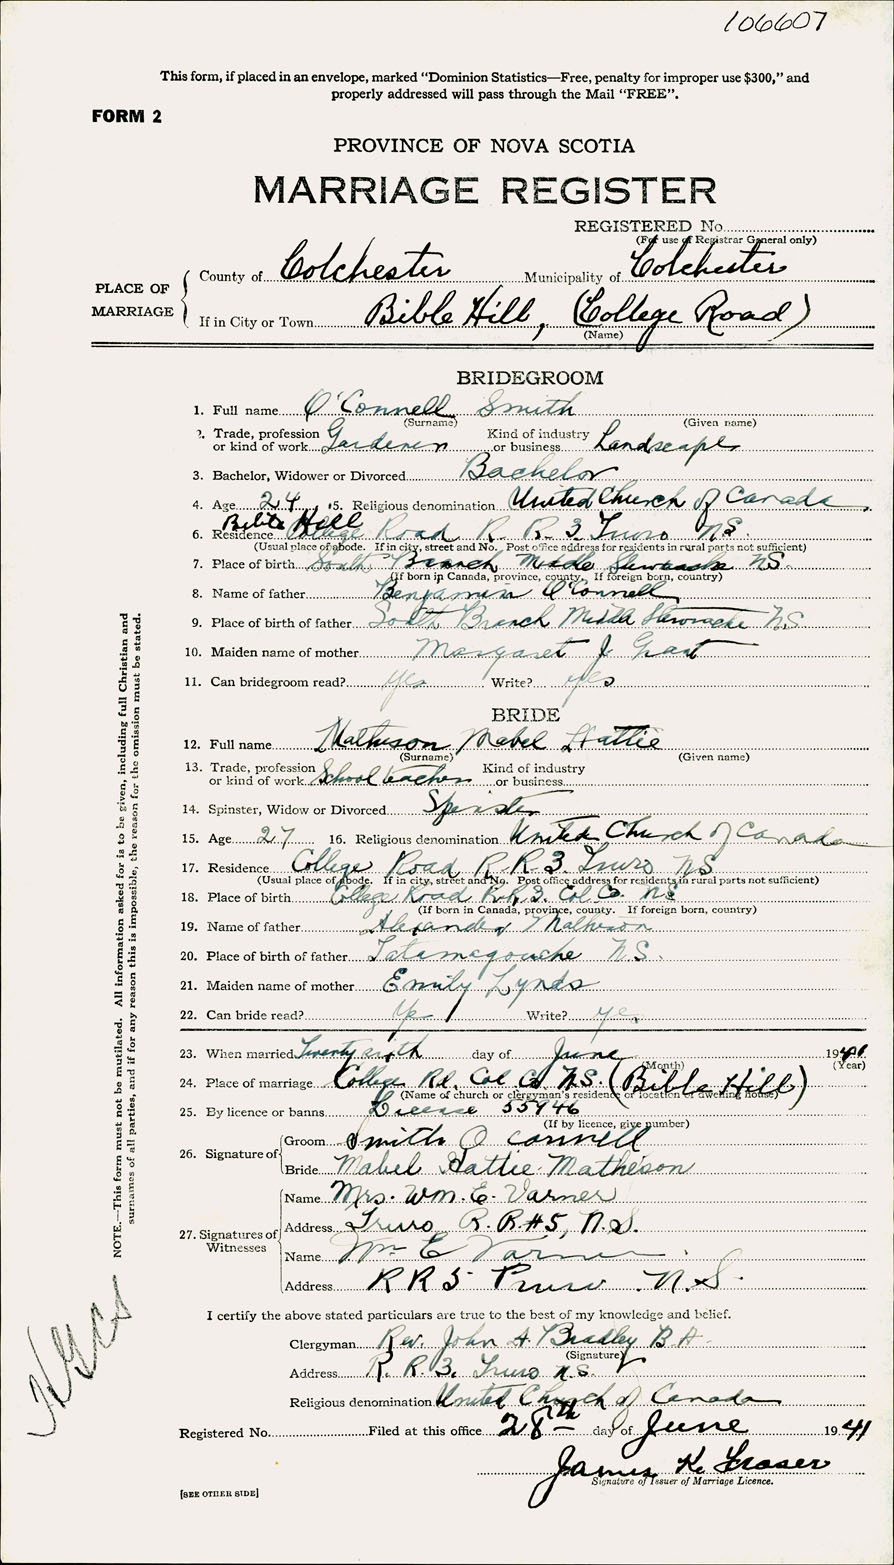 106607
This form, if placed in an envelope, marked “Dominion Statistics—Free, penalty for improper use $300,” and
properly addressed will pass through the Mail “FREE”.
FORM 2
PROVINCE OF NOVA SCOTIA
MARRIAGE REGISTER
REGISTERED No.
(For use of Registrar General only)
PLACE OF MARRIAGE
County of Colchester Municipality of Colchester
If in City or Town Bible Hill, (College Road)
(Name)
BRIDEGROOM
1. Full name O'Connell Smith
(Surname) (Given name)
2. Trade, profession or kind of work Gardener Kind of industry or business Landscape
3. Bachelor, Widower or Divorced Bachelor
4. Age 24 5. Religious denomination United Church of Canada
Bible Hill
6. Residence College Road R. R. 3. Truro NS.
(Usual place of abode. If in city, street and No. Post office address for residents in rural parts not sufficient)
7. Place of birth South Branch Middle NS.
(If born in Canada, province, county. If foreign born, country)
8. Name of father Benjamin O'Connell
9. Place of birth of father South Branch Middle N.S
10. Maiden name of mother Margaret J Grant
11. Can bridegroom read? yes Write? yes
BRIDE
12. Full name Matheson Mabel Hattie
(Surname) (Given name)
13. Trade, profession or kind of work School teacher Kind of industry or business
14. Spinster, Widow or Divorced Spinster
15. Age 27 16. Religious denomination United Church of Canada
17. Residence College Road R. R 3. Truro NS
(Usual place of abode. If in city, street and No. Post office address for residents in rural parts not sufficient)
18. Place of birth College Road R.R.3. Col Co. NS
(If born in Canada, province, county. If foreign born, country)
19. Name of father Alexander Matheson
20. Place of birth of father Tatamagouche N.S.
21. Maiden name of mother Emily Lynds
22. Can bride read? Yes Write? yes
23. When married Twenty sixth day of June 1941
(Month) (Year)
24. Place of marriage College Rd. Col Co N.S. (Bible Hill)
(Name of church or clergyman's residence or location of dwelling house)
25. By licence or banns License 55946
(If by licence, give number)
26. Signature of Groom Smith O'Connell
Bride Mabel Hattie Matheson
27. Signatures of Witnesses
Name Mrs. Wm. E. Varner
Address Truro R.R#5, N.S.
Name Wm E Varner
Address R R 5 Truro N.S.
I certify the above stated particulars are true to the best of my knowledge and belief.
Clergyman Rev. John A Bradley B.A.
(Signature)
Address R. R. 3. Truro N.S.
Religious denomination United Church of Canada
Registered No. Filed at this office 28th day of June 1941
James K. Fraser
Signature of Issuer of Marriage Licence.
[SEE OTHER SIDE]
NOTE.—This form must not be mutilated. All information asked for is to be given, including full Christian and
surnames of all parties, and if for any reason this is impossible, the reason for the omission must be stated.